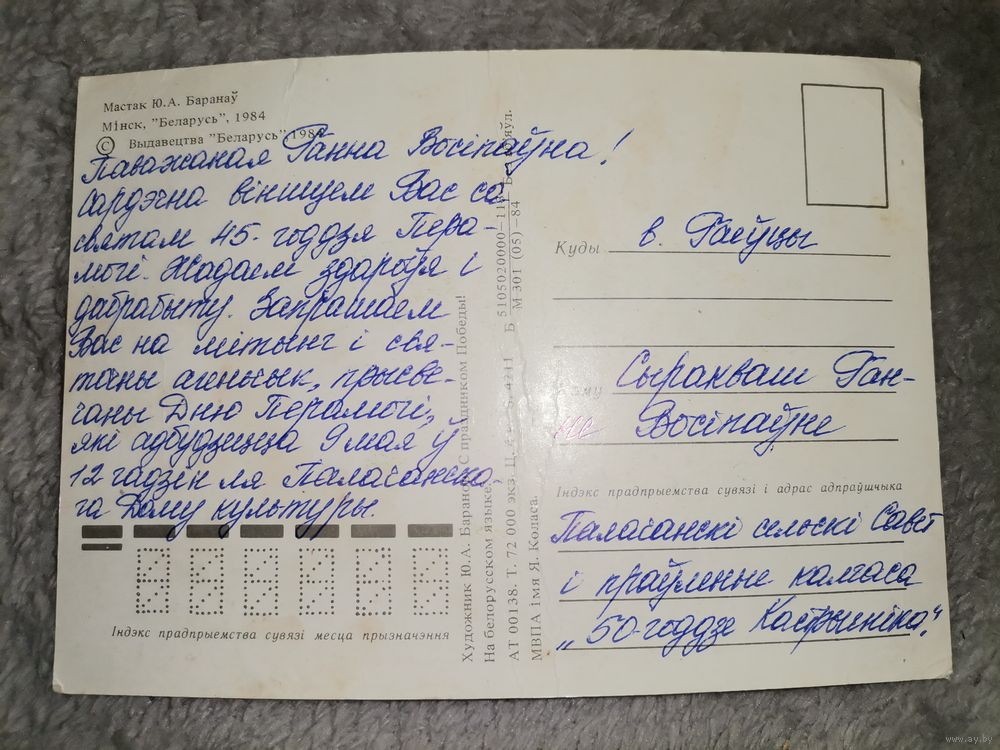 Мастак Ю.А. Баранаў
Мінск, "Беларусь", 1984
© Выдавецтва "Беларусь" 1984
Паважаная Ганна Восіпаўна!
Сардэчна віншуем Вас са
святам 45-годдзя Пера-
могі. Жадаем здароўя і
дабрабыту. Запрашаем
Вас на мітынг і свя-
точны агеньчык, прысве-
чаны Дню Перамогі,
які адбудзецца 9 мая ў
12 гадзін ля Палачанска-
га Дому культуры.
Індэкс прадпрыемства сувязі месца прызначэння
Художник Ю. А. Баранов. С праздником Победы!
На белорусском языке.
АТ 00138. Т. 72 000 экз. Ц. 4211
МВПА імя Я. Коласа.
Б 5105020000—118
М 301 (05)—84
Куды в. Гаеўцы
Каму Сыракваш Ган-
не Восіпаўне
Індэкс прадпрыемства сувязі і адрас адпраўшчыка
Палачанскі сельскі Савет
і праўленне калгаса
„50-годдзе Кастрычніка."
www.ay.by